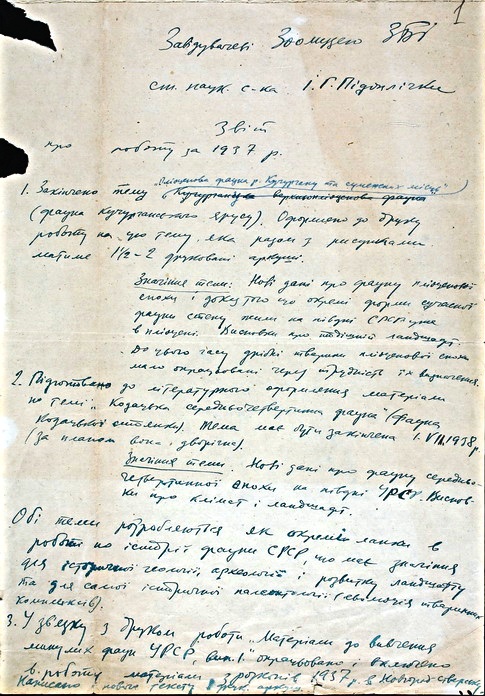 1
Завідувачеві Зоомузею ЗБІ
ст. наук. с-ка І. Г. Підоплічки
Звіт
про роботу за 1937 р.
"Пліоценова фауна р. Кучургану та сумежних місць"
1. Закінчено тему
(фауна Кучурганського ярусу). Оформлено до друку
роботу на цю тему, яка разом з рисунками
матиме 1½-2 друковані аркуші.
Значіння теми: Нові дані про фауну пліоценової
епохи і доказ того що окремі форми сучасної
фауни степу жили на півдні СРСР уже
в пліоцені. Висновки про тодішній ландшафт.
До цього часу дрібні тварини пліоценової епохи
мало опрацьовані через трудність їх визначення.
2. Підготовано до літературного оформлення матеріали
на тему "Козацька середньочетвертинна фауна" (фауна
Козацької стоянки). Тема має бути закінчена 1.VII.1938 р.
(за планом вона дворічна).
Значіння теми. Нові дані про фауну середньо-
четвертинної епохи на півдні УРСР. Виснов-
ки про клімат і ландшафт.
Обі теми розробляються як окремі ланки в
роботі по історії фауни СРСР, що має значіння
для історичної геології, археології і розвитку ландшафту
та для самої історичної палеонтології (еволюція тваринних
комплексів).
3. У звязку з друком роботи "Матеріали до вивчення
минулих фаун УРСР, вип. І" опрацьовано і включено
в роботу матеріали з розкопів 1937 р. в Новгород-Сіверську
Написано нового тексту друк. аркуш